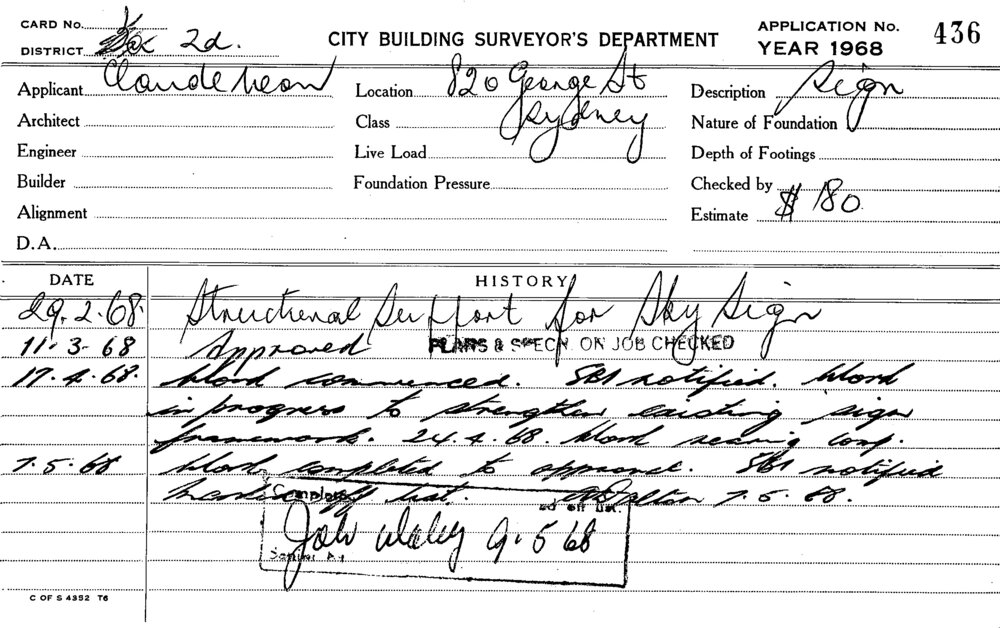 CARD No. 1/
DISTRICT 2d.
CITY BUILDING SURVEYOR'S DEPARTMENT
APPLICATION No. 436
YEAR 1968
Applicant Claude Neon
Location 820 George St
Sydney
Description Sign
Architect
Class
Nature of Foundation
Engineer
Live Load
Depth of Footings
Builder
Foundation Pressure
Checked by
Alignment
Estimate $ 180
D.A.
DATE HISTORY
29.2.68. Structural Support for Sky Sign
11-3-68 Approved PLANS & SPECN ON JOB CHECKED
17.4.68. Work commenced. SBI notified. Work
in progress to strengthen existing sign
framework. 24.4.68. Work nearing comp.
7.5.68 Work completed to approval. SBI notified
off list. 7.5.68.
Completed
ed off list.
9.5 68
C OF S 4352 T6